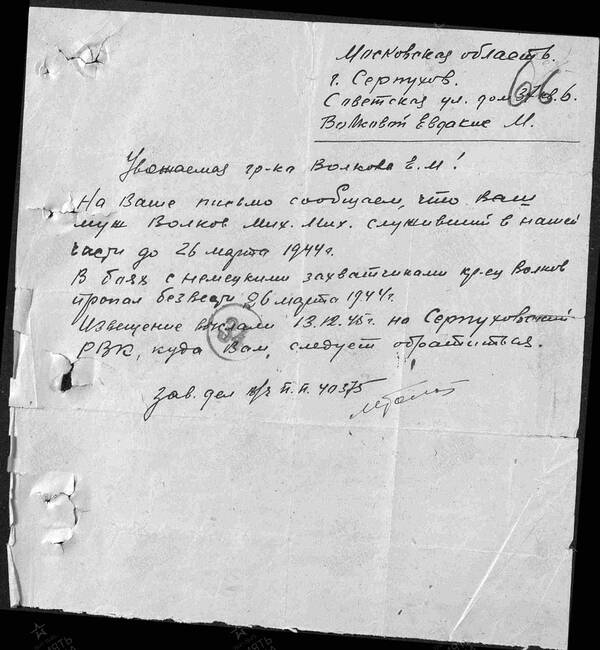 Московская область.
г. Серпухов.
Советская ул. дом 37 кв. 6.
66
Волковой Евдакие М.
Уважаемая гр-ка Волкова Е. М!
На Ваше письмо сообщаем, что Ваш
муж Волков Мих. Мих. служивший в нашей
части до 26 марта 1944г.
В боях с немецкими захватчиками кр-ец Волков
пропал без вести 26 марта 1944г.
Извещение выслали 13.12.45г. на Серпуховский
РВК, куда Вам, следует обратиться.
зав. дел в/ч п.п. 40375